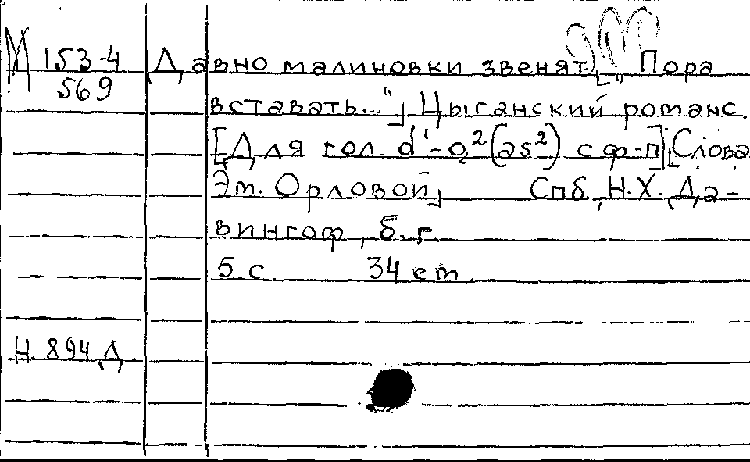 М 153-4
569
Давно малиновки звенят. ["Пора
вставать..."] Цыганский романс.
[Для гол. d¹-g²(as²) с ф-п] [Слова
Эм. Орловой]. Спб, Н.Х. Да-
вингоф, б.г.
5 с. 34 ст.
Н. 894 Д